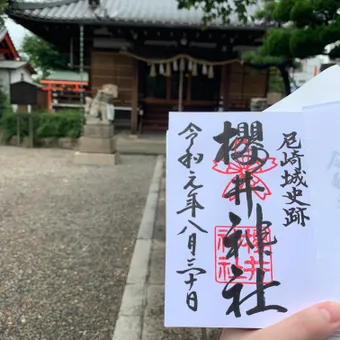 尼崎城史跡
櫻井神社
櫻井
神社
令和元年八月三十日